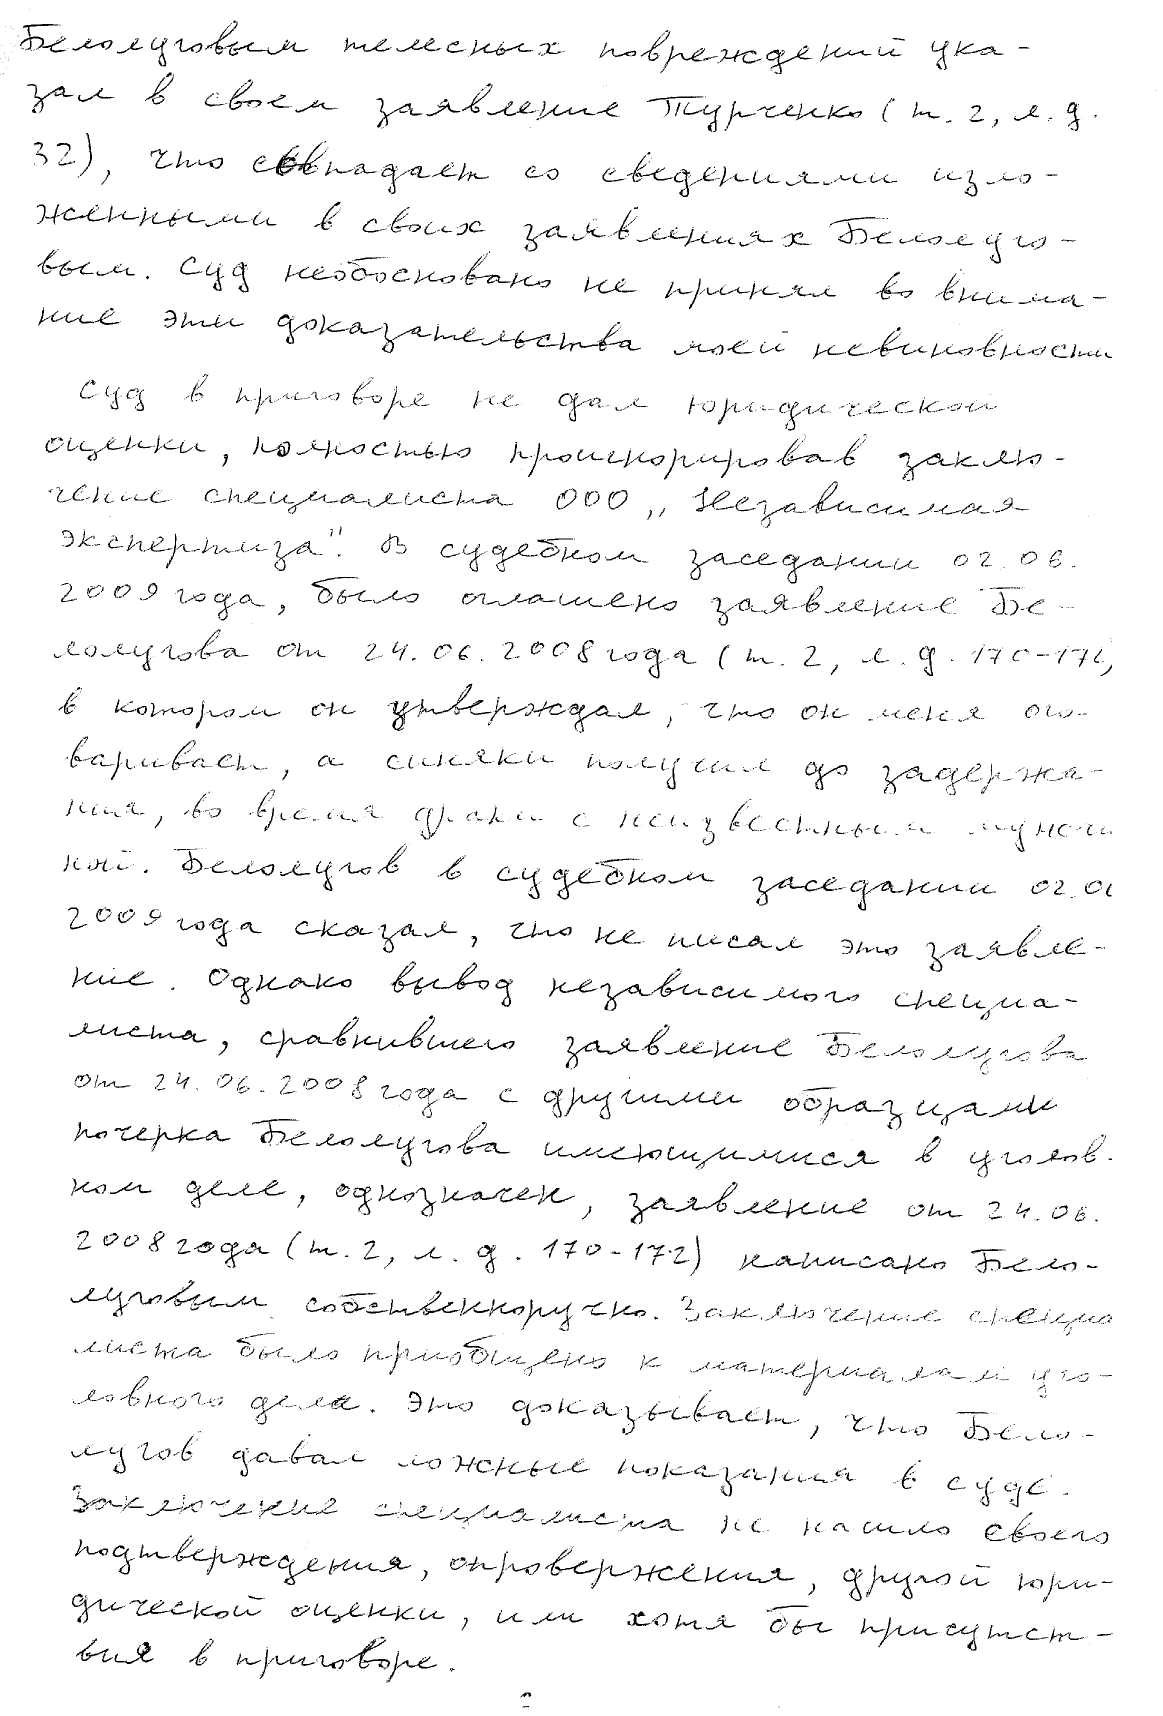 Белолуговым телесных повреждений ука-
зал в своем заявление Турченко (т. 2, л. д.
32), что совпадает со сведениями изло-
женными в своих заявлениях Белолуго-
вым. Суд необосновано не принял во внима-
ние эти доказательства моей невиновности
Суд в приговоре не дал юридической
оценки, полностью проигнорировав заклю-
чение специалиста ООО „Независимая
экспертиза". В судебном заседании 02.06.
2009 года, было оглашено заявление Бе-
лолугова от 24.06.2008 года (т. 2, л. д. 170-172,
в котором он утверждал, что он меня ого-
варивает, а синяки получил до задержа-
ния, во время драки с неизвестным мужчи
ной. Белолугов в судебном заседании 02.06
2009 года сказал, что не писал это заявле-
ние. Однако вывод независимого специа-
листа, сравнившего заявление Белолугова
от 24.06.2008 года с другими образцами
почерка Белолугова имеющимися в уголов-
ном деле, однозначен, заявление от 24.06.
2008 года (т. 2, л. д. 170-172) написано Бело-
луговым собственноручно. Заключение специа
листа было приобщено к материалам уго-
ловного дела. Это доказывает, что Бело-
лугов давал ложные показания в суде.
Заключение специалиста не нашло своего
подтверждения, опровержения, другой юри-
дической оценки, или хотя бы присутст-
вия в приговоре.